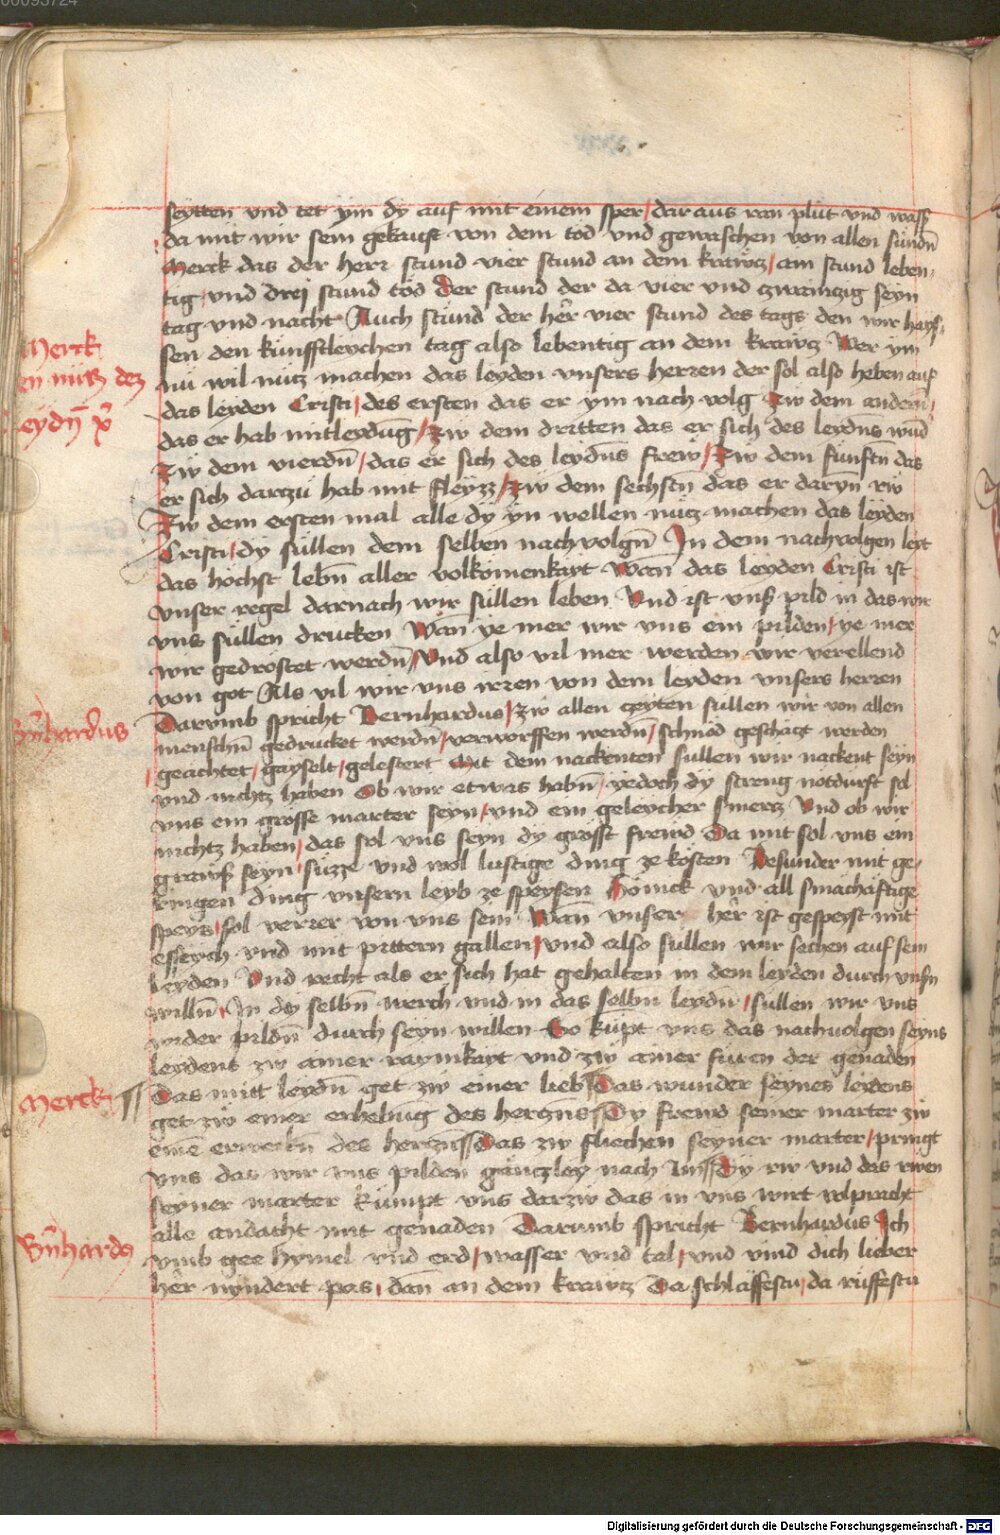 seytten vnd tet ym dy auf mit einem sper / dar aus ran plut vnd wass
da mit wir sein gekauft von dem tod vnd gewaschen von allen sündñ
Merck das der herr stund vier stund an dem krawcz / am stund leben-
tig / vnd drej stund tod Der stund der da vier vnd zwainzig seyn
tag vnd nacht Auch stund der her vier stund des tags den wir hays-
sen den künfftleychen tag also lebentig an dem krawcz Wer ym
nu wil nücz machen das leyden vnsers herren der sol also heben auf
das leyden Cristi / des ersten das er ym nach volg Zw dem andern /
das er hab mitleydung / Zw dem dritten das er sich des leydens wund
Zw dem vierdñ / das er sich des leydens frew / Zw dem fünfftñ das
er sich darzu hab mit fleyzz / Zw dem sechstñ das er daryn rw
Zw dem ersten mal alle dy yn wellen nücz machen das leyden
Cristi / dy süllen dem selben nachvolgñ In dem nachvolgen leyt
das höchst lebñ aller volkomenkayt Wañ das leyden Cristi ist
vnser regel darnach wir süllen leben Vnd ist vnß pild in das wir
vns süllen drucken Wañ ye mer wir vns ein pilden / ye mer
wir gedröstet werdñ / Vnd also vil mer werden wir verellend
von got Als vil wir vns irren von dem leyden vnsers herren
Darumb spricht Bernhardus / zw allen czyten süllen wir von allen
menschñ gedrucket werdñ / verworffen werdñ / schnöd geschäczt werden
geachtet / gayselt / gelestert Mit dem nackenten süllen wir nackent seyn
vnd nichtz haben Ob wir etwas habñ / yedoch dy streng notdurft sol
vns ein grosse marter seyn / vnd ein geleycher smercz Vnd ob wir
nichtz haben / das sol vns seyn dy gröst frewd Da mit sol vns ein
grawß seyn / süzze vnd wol lustige ding ze kosten Besunder mit ge-
ringen ding vnsern leyb ze speysen Hönick vnd all smachaftige
speys / sol verrer von vns sein Wañ vnser her ist gespeyst mit
esseych vnd mit pittern gallen / vnd also süllen wir sechen auf sein
leyden Vnd recht als er sich hat gehalten in dem leyden durch vnsñ
willñ / In dy selbñ werch vnd in das selbñ leydñ / süllen wir vns
wider pildñ durch seyn willen So küpt vns das nachuolgen seyns
leydent zw ainer raynikayt vnd zw ainer füren der genaden
Das mitt leydñ get zw einer lieb Das wunder seynes leydens
get zw einer erhebung des hertzens Dy frewd seiner marter zw
einẽ erweckñ des hertzñs Das zw fliechen seyner marter / pringt
vns das wir vns pilden gänczley nach im Dy rw vnd das rwen
seyner marter kümpt vns darzw das in vns wirt volpracht
alle andacht mit genaden Darumb spricht Bernhardus Ich
vmb gee hymel vnd erd / wasser vnd tal / vnd vind dich lieber
her nyndert pas / dañ an dem krawcz Da schläffestu / da rüffestu
Merck
en nücz dez
eydñ xp̃i
Bñhardus
Merck
Bñhardꝰ
00093724
Digitalisierung gefördert durch die Deutsche Forschungsgemeinschaft - DFG